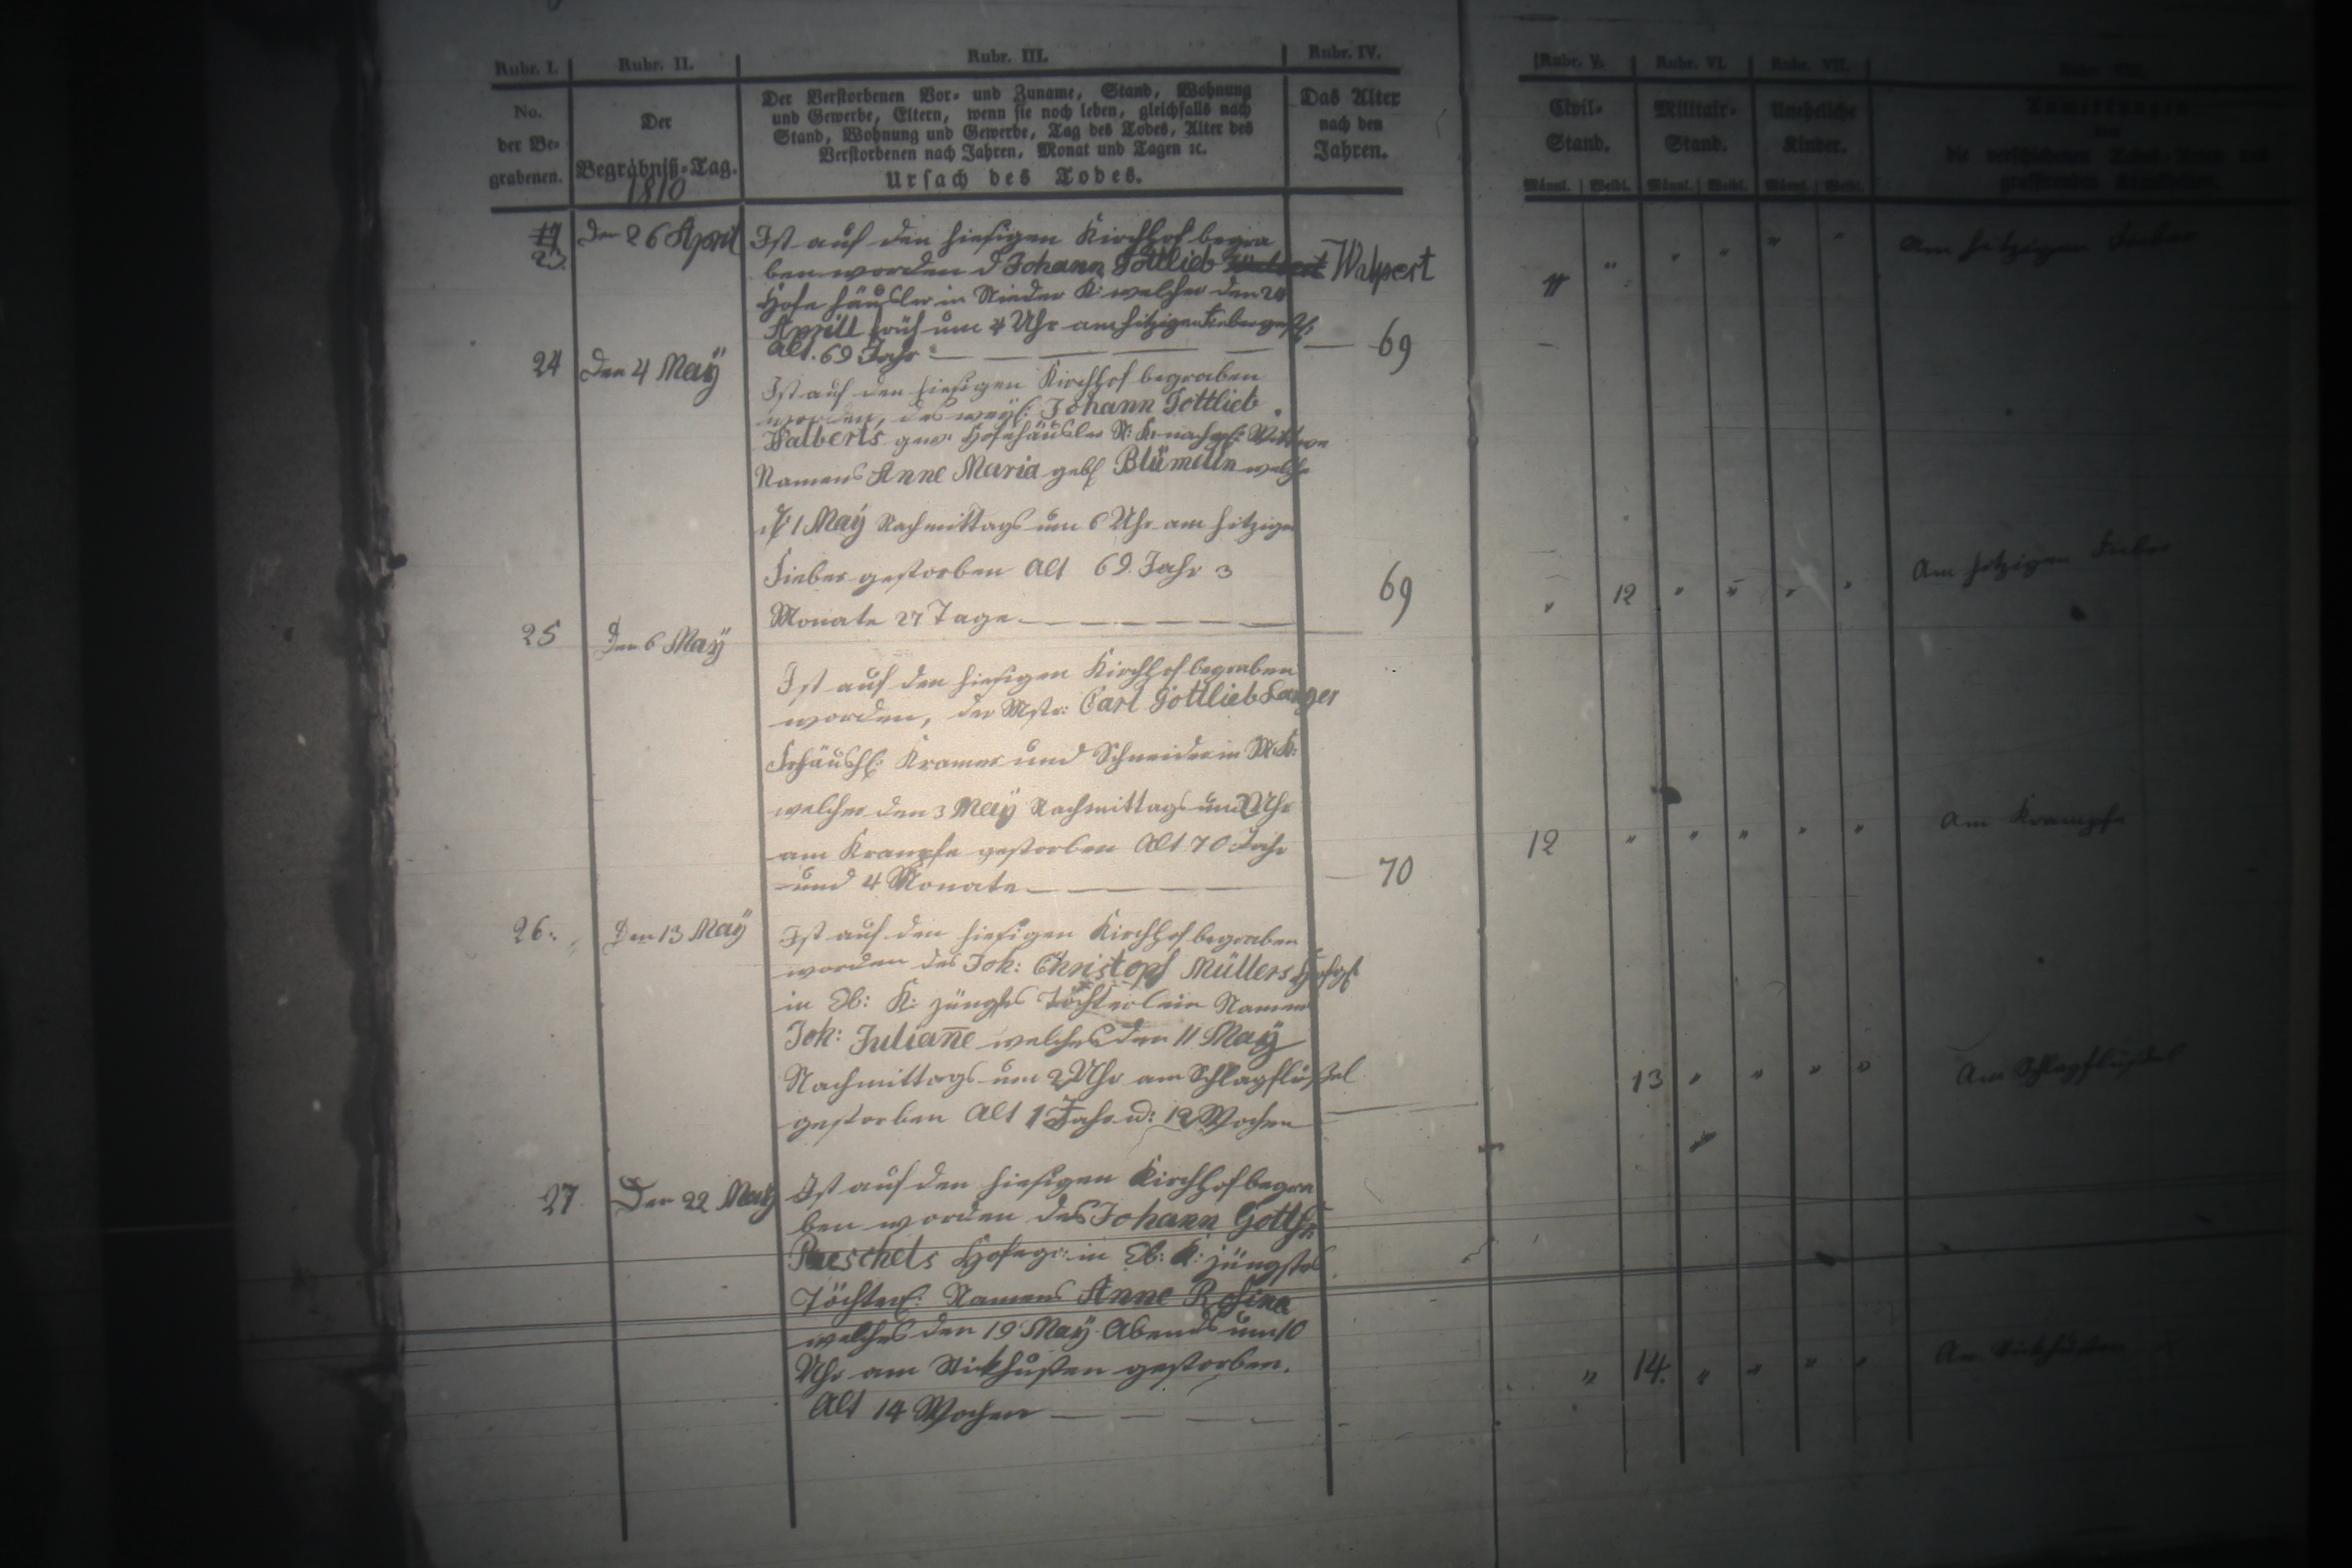 Rubr. I. Rubr. II. Rubr. III. Rubr. IV. Rubr. V. Rubr. VI. Rubr. VII.
No.
der Be-
grabenen.
Der
Begräbniß-Tag.
1810
Der Verstorbenen Vor- und Zuname, Stand, Wohnung
und Gewerbe, Eltern, wenn sie noch leben, gleichfalls nach
Stand, Wohnung und Gewerbe, Tag des Todes, Alter des
Verstorbenen nach Jahren, Monat und Tagen ꝛc.
Ursach des Todes.
Das Alter
nach den
Jahren.
Civil-
Stand.
Militair-
Stand.
Uneheliche
Kinder.
Anmerkungen
die verschiedenen Todes-Arten und
grassirenden Krankheiten.
Männl. Weibl. Männl. Weibl. Männl. Weibl.
23 den 26 April
Ist auf den hiesigen Kirchhof begra
ben worden d Johann Gottlieb Walpert
Hofehäusler in Nieder K: welcher den 24
Aprill früh um 4 Uhr am hitzigen Fieber gest:
alt. 69 Jahr 69
11 Am hitzigen Fieber
24 den 4 Maÿ
Ist auf den hiesigen Kirchhof begraben
worden, des weyl: Johann Gottlieb
Walberts gew: Hofehäusler N: K: nachgel: Wittwe
Namens Anne Maria geb. Blümelin welche
d. 1 Maÿ Nachmittags um 6 Uhr am hitzigen
Fieber gestorben alt 69. Jahr 3
Monate 27 Tage 69
12 Am hitzigen Fieber
25 Den 6 Maÿ
Ist auf den hiesigen Kirchhof begraben
worden, der Mstr: Carl Gottlieb Langer
Frhäusl: Kramer und Schneider in N: K:
welcher den 3 Maÿ Nachmittags um 2 Uhr
am Krampfe gestorben alt 70 Jahr
und 4 Monate 70
12 Am Krampfe
26. Den 13 Maÿ
Ist auf den hiesigen Kirchhof begraben
worden des Joh: Christoph Müllers Hofegr
in Ob: K: jüngstes Töchterlein Namens
Joh: Julian̄e welches den 11 Maÿ
Nachmittags um 2 Uhr am Schlagflußel
gestorben alt 1 Jahr u: 12 Wochen
13 Am Schlagflußel
27 Den 22 Maÿ
Ist auf den hiesigen Kirchhof begra
ben worden des Johann Gottfr:
Pueschels Hofegr: in Ob: K: jüngstes
Töchterl: Namens Anne Rosina
welches den 19 Maÿ Abends um 10
Uhr am Stickhusten gestorben.
Alt 14 Wochen
14. Am Stickhusten